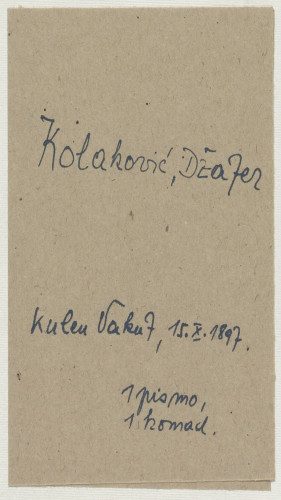 Kolaković, Džafer
Kulen Vakuf, 15.X.1897.
1 pismo,
1 komad.